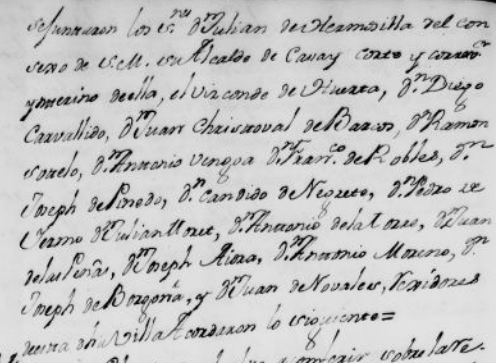 se Juntaron los S.res D.n Julian de Hermosilla del con
sexo de S.M. su Alcalde de Casa y corte y correx.or
y merino de ella, el Vizconde de Huerta, D.n Diego
Carvallido, D.n Juan Christoval de Barcos, D.n Ramon
sotelo, D.n Antonio Vengoa D.n Fran.co de Robles, D.n
Joseph de Pinedo, D.n Candido de Negrete, D.n Pedro de
D.n Julian Moret, D.n Antonio de la Torre, D.n Juan
de las Peñas, D.n Joseph Aiora, D.n Antonio Moreno, D.n
Joseph de Borgoña, y D.n Juan de Novales, rexidores
de esta dha Villa Acordaron lo siguiente=
sobre la re.